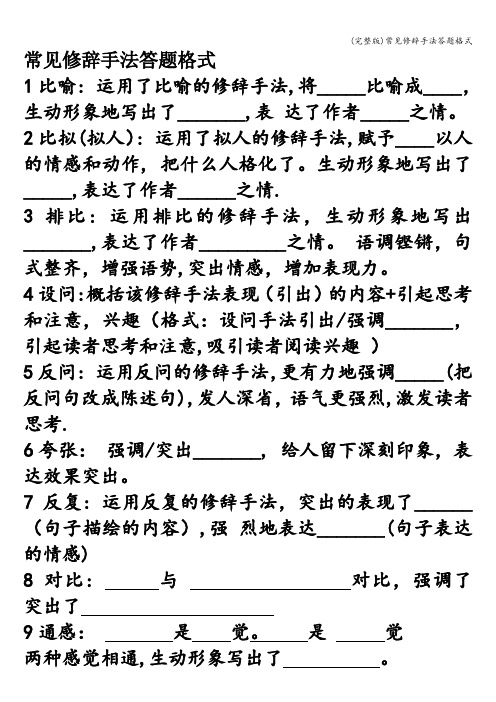 (完整版)常见修辞手法答题格式
常见修辞手法答题格式
1比喻：运用了比喻的修辞手法,将_____比喻成____，
生动形象地写出了_______,表 达了作者_____之情。
2比拟(拟人)：运用了拟人的修辞手法,赋予____以人
的情感和动作，把什么人格化了。生动形象地写出了
_____,表达了作者______之情.
3 排比：运用排比的修辞手法，生动形象地写出
_______,表达了作者_________之情。 语调铿锵，句
式整齐，增强语势,突出情感，增加表现力。
4设问:概括该修辞手法表现（引出）的内容+引起思考
和注意，兴趣（格式：设问手法引出/强调_______，
引起读者思考和注意,吸引读者阅读兴趣 ）
5反问：运用反问的修辞手法,更有力地强调_____(把
反问句改成陈述句),发人深省，语气更强烈,激发读者
思考.
6夸张： 强调/突出_______，给人留下深刻印象，表
达效果突出。
7 反复：运用反复的修辞手法，突出的表现了______
（句子描绘的内容）,强 烈地表达_______(句子表达
的情感)
8 对比：_____与 _______________对比，强调了
突出了__________________
9通感： ______是____觉。_____是 _____觉
两种感觉相通,生动形象写出了_________。